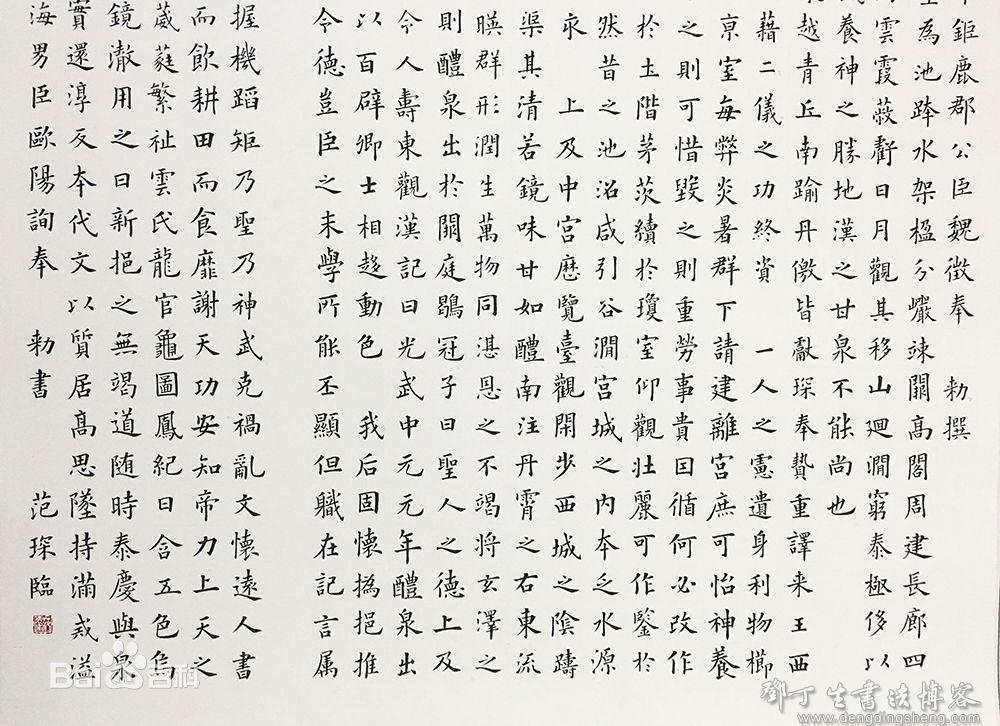 鉅鹿郡公臣魏徵奉 勅撰
為池跨水架楹分巖竦闕高閣周建長廊四
雲霞蔽虧日月觀其移山迴澗窮泰極侈以
養神之勝地漢之甘泉不能尚也
越青丘南踰丹儌皆獻琛奉贄重譯来王西
藉二儀之功終資 一人之慮遺身利物櫛
京室每弊炎暑群下請建離宮庶可怡神養
之則可惜毀之則重勞事貴因循何必改作
於土階茅茨續於瓊室仰觀壯麗可作鑒於
然昔之池沼咸引谷澗宮城之内本乏水源
上及中宮歷覽臺觀閑步西城之陰躊
渠其清若鏡味甘如醴南注丹霄之右東流
暎群形潤生萬物同湛恩之不竭將玄澤之
則醴泉出於闕庭鶡冠子曰聖人之德上及
今人壽東觀漢記曰光武中元元年醴泉出
以百辟卿士相趍動色 我后固懷撝挹推
令德豈臣之末學所能丕顯但職在記言属
握機蹈矩乃聖乃神武克禍亂文懷遠人書
而飲耕田而食靡謝天功安知帝力上天之
葳蕤繁祉雲氏龍官龜圖鳳紀日含五色烏
鏡澈用之日新挹之無竭道随時泰慶與泉
實還淳反本代文以質居高思墜持滿戒溢
海男臣歐陽詢奉 勅書 范琛臨
Bai百科
鄧丁生書法博客
www.dengdingsheng.com